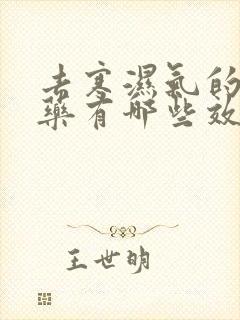 去寒濕氣的
藥有哪些效
王世明